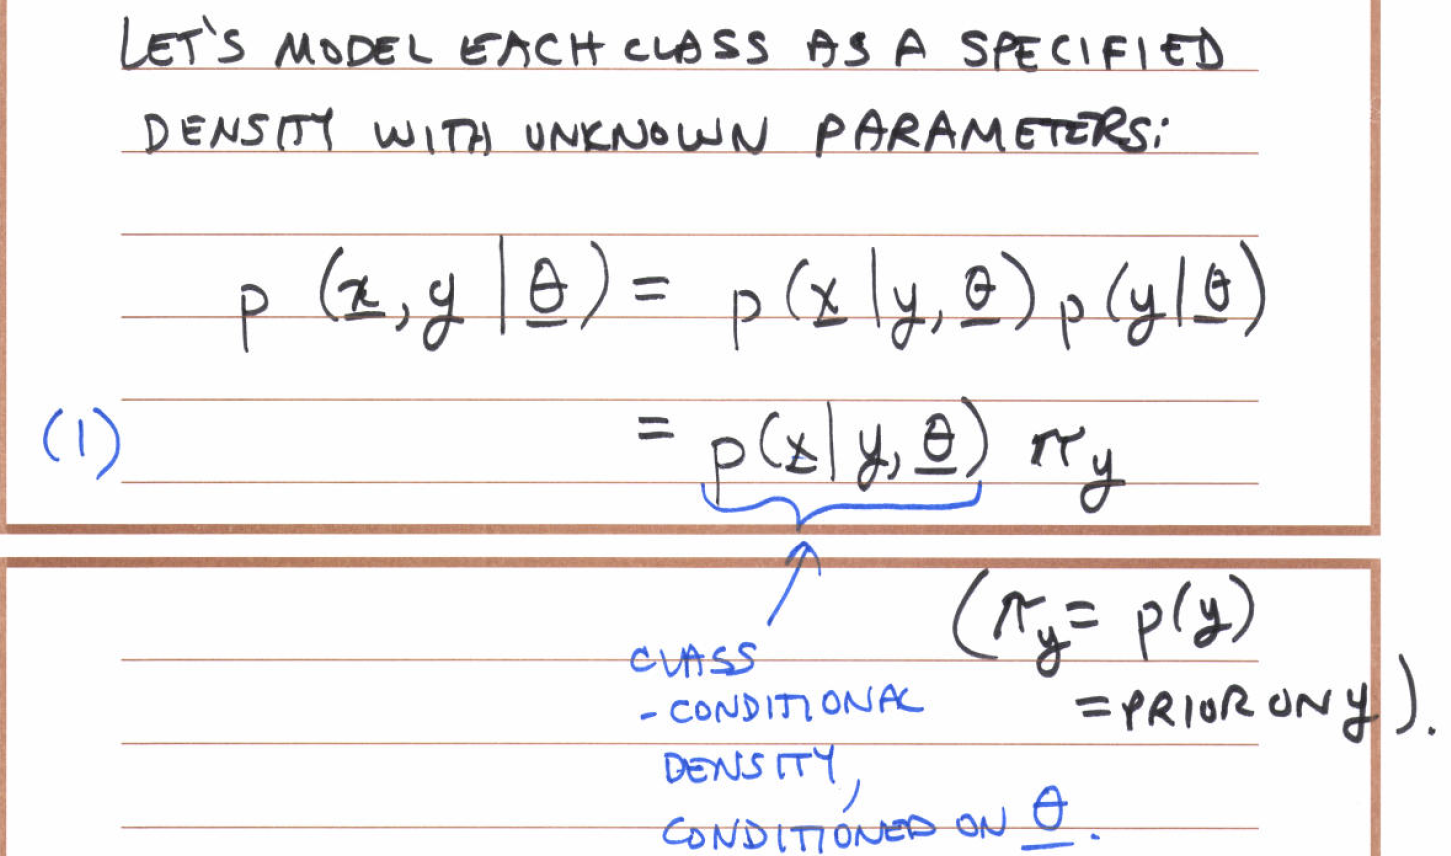 LET'S MODEL EACH CLASS AS A SPECIFIED
DENSITY WITH UNKNOWN PARAMETERS:
p (x, y | θ) = p (x | y, θ) p (y | θ)
(1) = p(x | y, θ) π_y
(π_y = p(y)
CLASS
- CONDITIONAL
= PRIOR ON y).
DENSITY,
CONDITIONED ON θ.